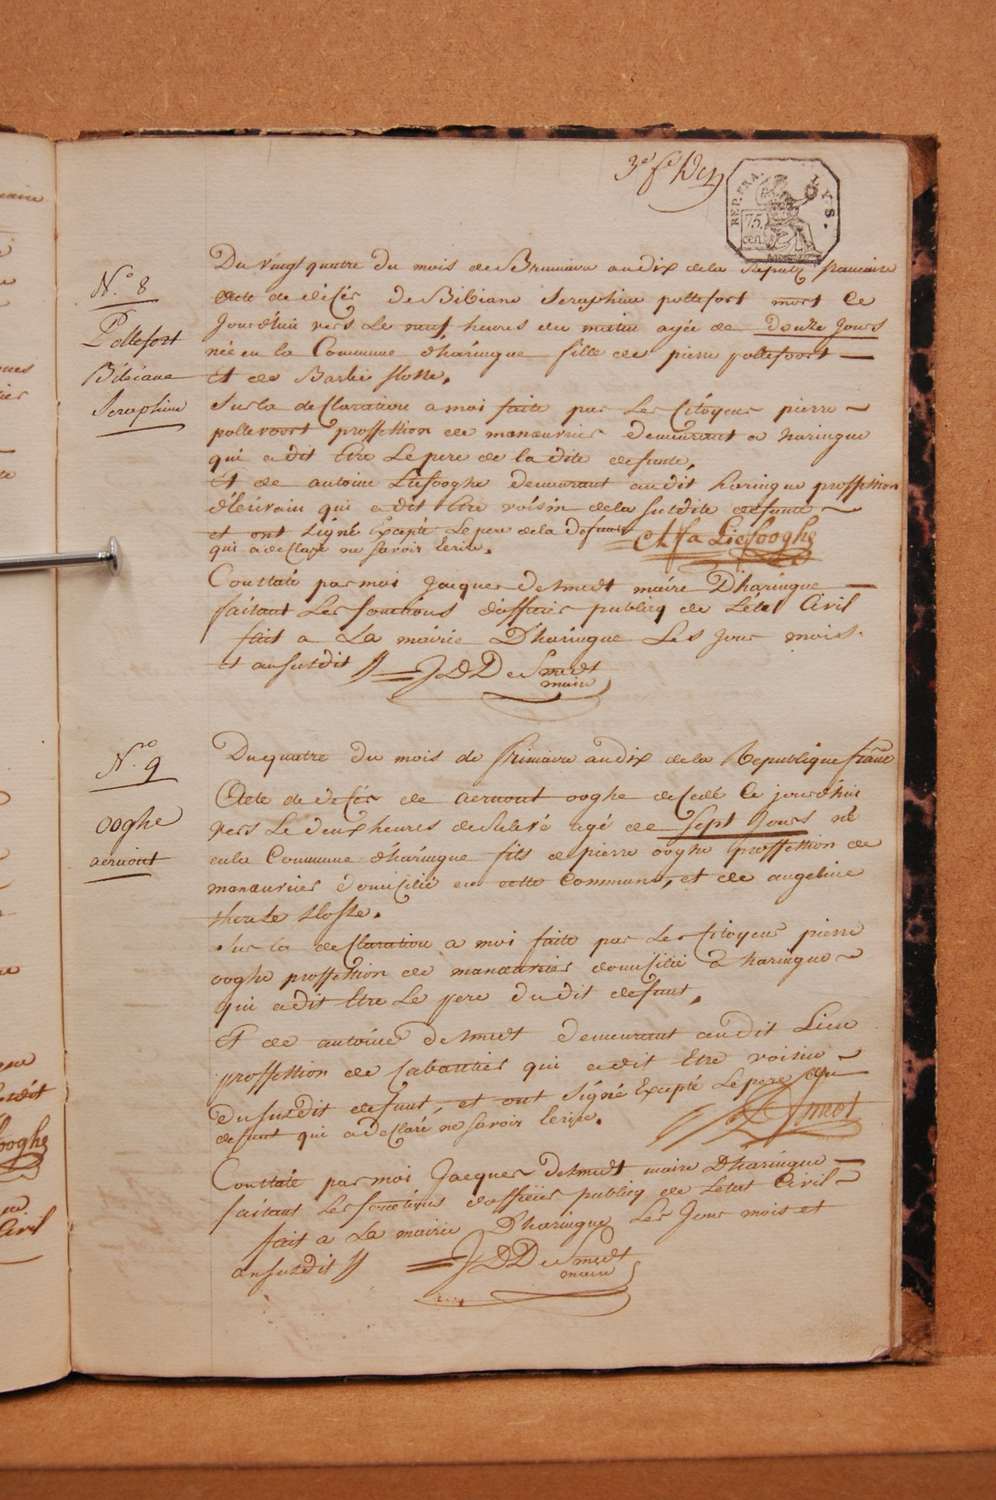 3e fe
REP. FRA.
LYS.
75
cen.
No. 8
Pollefort
Bibiane
Seraphine
Du vingt quatre du mois de Brumaire an dix de la Republ francaise
Acte de décès de Bibiane Seraphine pollefort mort Ce
Jourd'hui vers Le neuf heures du matin agée de douze Jours
née en la Commune d'haringue fille de pierre pollefoort
Et de Barbe
Sur la declaration a moi faite par Le Citoyen pierre
pollevoort proffession de manœuvrier demeurant a haringue
qui a dit Etre Le pere de la dite defunte,
Et de antoine Liefooghe demeurant audit haringue proffession
d'Ecrivain qui a dit Etre voisin de la susdite defunte
et ont signé Excepté Le pere de la defunte
qui a declaré ne savoir Ecrire.
Liefooghe
Constaté par moi Jacques Desmedt maire D'haringue
faisant Les fonctions d'officier publicq de L'état Civil
fait a La mairie D'haringue Les Jour mois
et an susdit // J D Desmedt
maire
No. 9
ooghe
aernout
Du quatre du mois de frimaire an dix de la Republique francse
Acte de décès de aernout ooghe decedé Ce jourd'hui
vers Le deux heures de Relevé agé de sept Jours né
en la Commune d'haringue fils de pierre ooghe proffession de
manœuvrier domicilié en cette Commune, et de angeline
therese
Sur la declaration a moi faite par Le Citoyen pierre
ooghe proffession de manœuvrier domicilié D'haringue
qui a dit Etre Le pere du dit defunt,
Et de antoine desmedt demeurant au dit Lieu
proffession de Cabartier qui a dit Etre voisin
du susdit defunt, et ont signé Excepté Le pere du
defunt qui a declaré ne savoir Ecrire.
Desmedt
Constaté par moi Jacques Desmedt maire D'haringue
faisant Les fonctions d'officier publicq de L'état Civil
fait a La mairie D'haringue Les Jour mois et
an susdit // J D Desmedt
maire